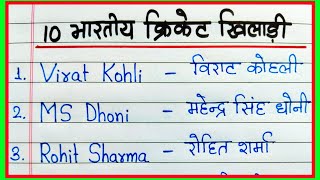 10 भारतीय क्रिकेट खिलाड़ी
1. Virat Kohli - विराट कोहली
2. MS Dhoni - महेन्द्र सिंह धोनी
3. Rohit Sharma - रोहित शर्मा